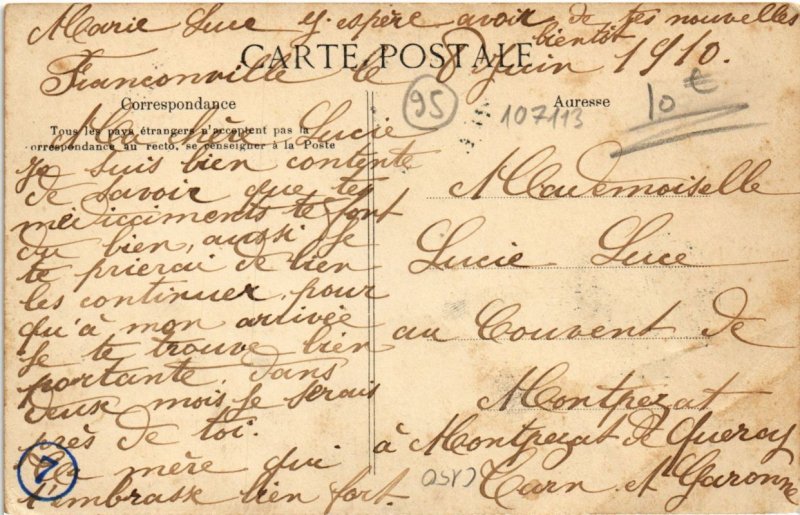 Marie Luce j'espère avoir de tes nouvelles
bientôt
CARTE POSTALE
Franconville le 8 Juin 1910.
95
107113
10 €
Correspondance
Tous les pays étrangers n'acceptent pas la
correspondance au recto, se renseigner à la Poste
Ma chère Lucie
Je suis bien contente
de savoir que tes
médicciments te font
du bien, aussi je
te prierai de bien
les continuer, pour
qu'à mon arrivée
je te trouve bien
portante, dans
deux mois je serais
près de toi.
Ta mère qui
t'embrasse bien fort.
7
Adresse
Mademoiselle
Lucie Luce
au Couvent de
Montpezat
à Montpezat de Quercy
Tarn et Garonne